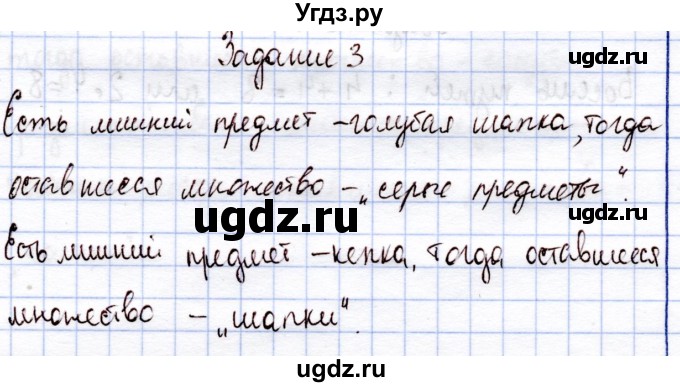 Угдз.ру
ugdz.ru ugdz.ru
Задание 3
Есть лишний предмет – голубая шапка, тогда
оставшееся множество – „серые предметы“.
ugdz.ru ugdz.ru
Есть лишний предмет – кепка, тогда оставшееся
множество – „шапки“.
ugdz.ru